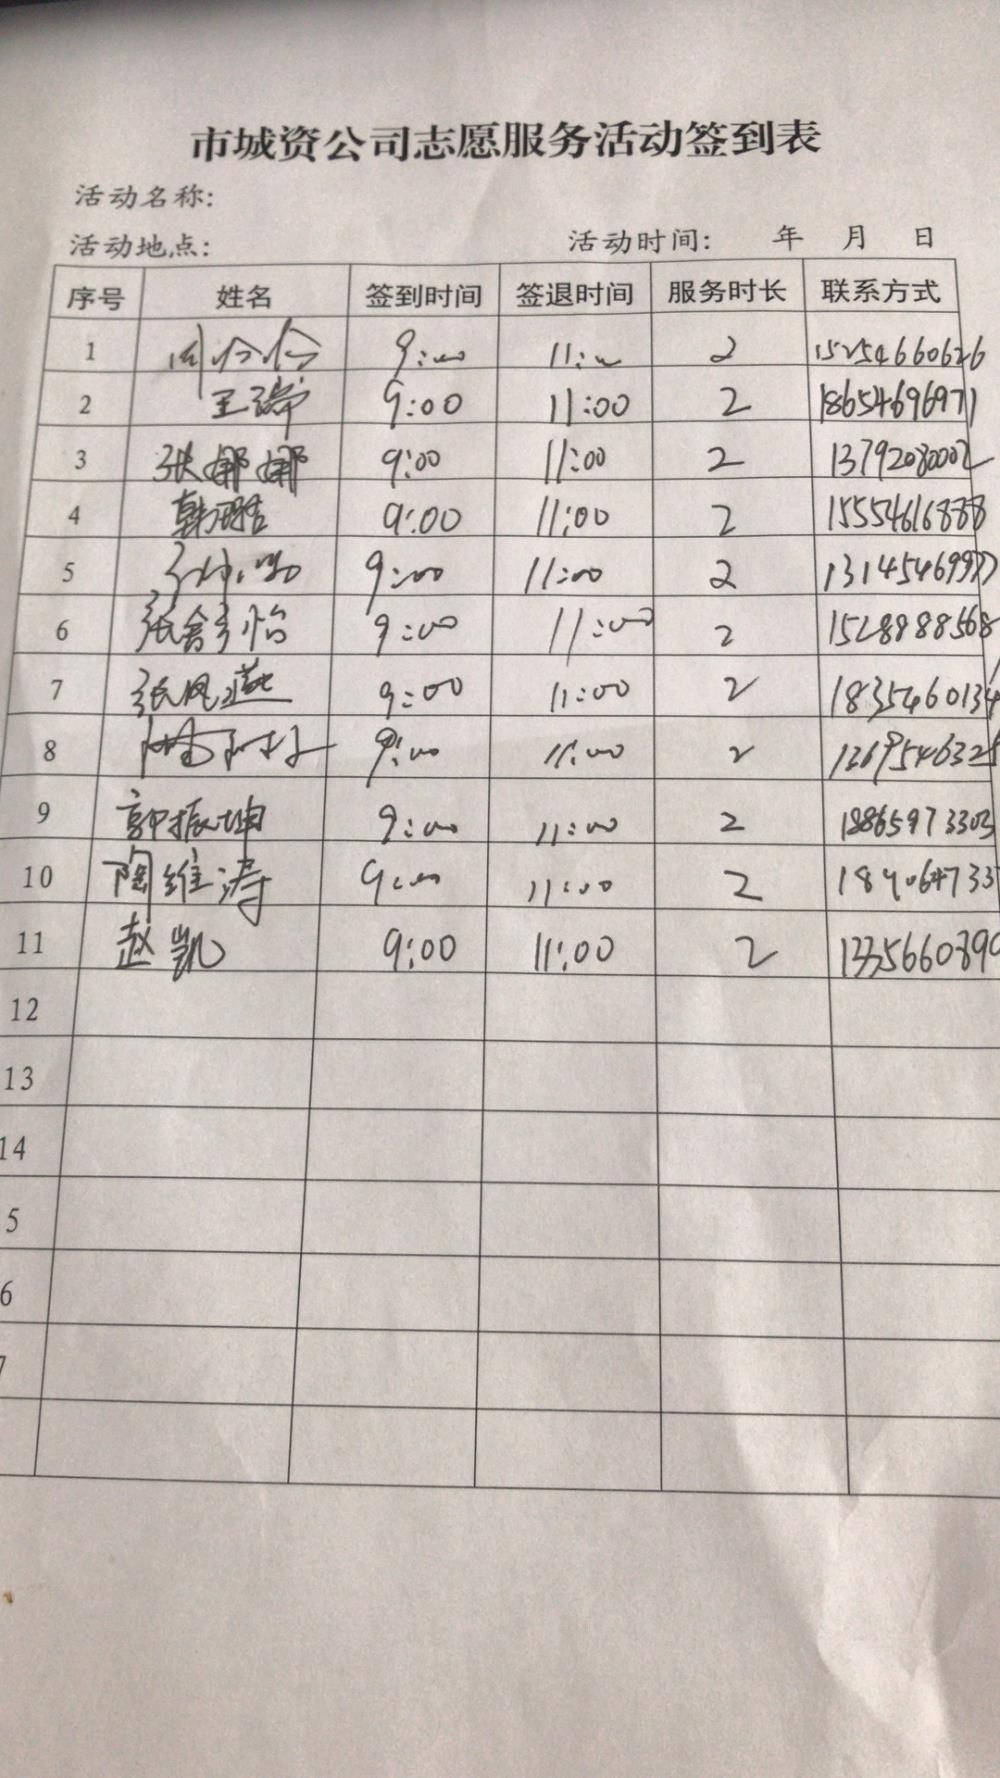 市城资公司志愿服务活动签到表
活动名称:
活动地点: 活动时间: 年 月 日
序号 姓名 签到时间 签退时间 服务时长 联系方式
1 9:00 11:00 2 15254660626
2 王瑞 9:00 11:00 2 18654696971
3 张娜娜 9:00 11:00 2 13792080002
4 韩 9:00 11:00 2 15554616888
5 9:00 11:00 2 13145469977
6 张 怡 9:00 11:00 2 15288988568
7 张凤燕 9:00 11:00 2 1835460134
8 9:00 11:00 2
9 郭振坤 9:00 11:00 2 18865973303
10 陶维涛 9:00 11:00 2
11 赵凯 9:00 11:00 2 1335660890
12
13
14
5
6
7